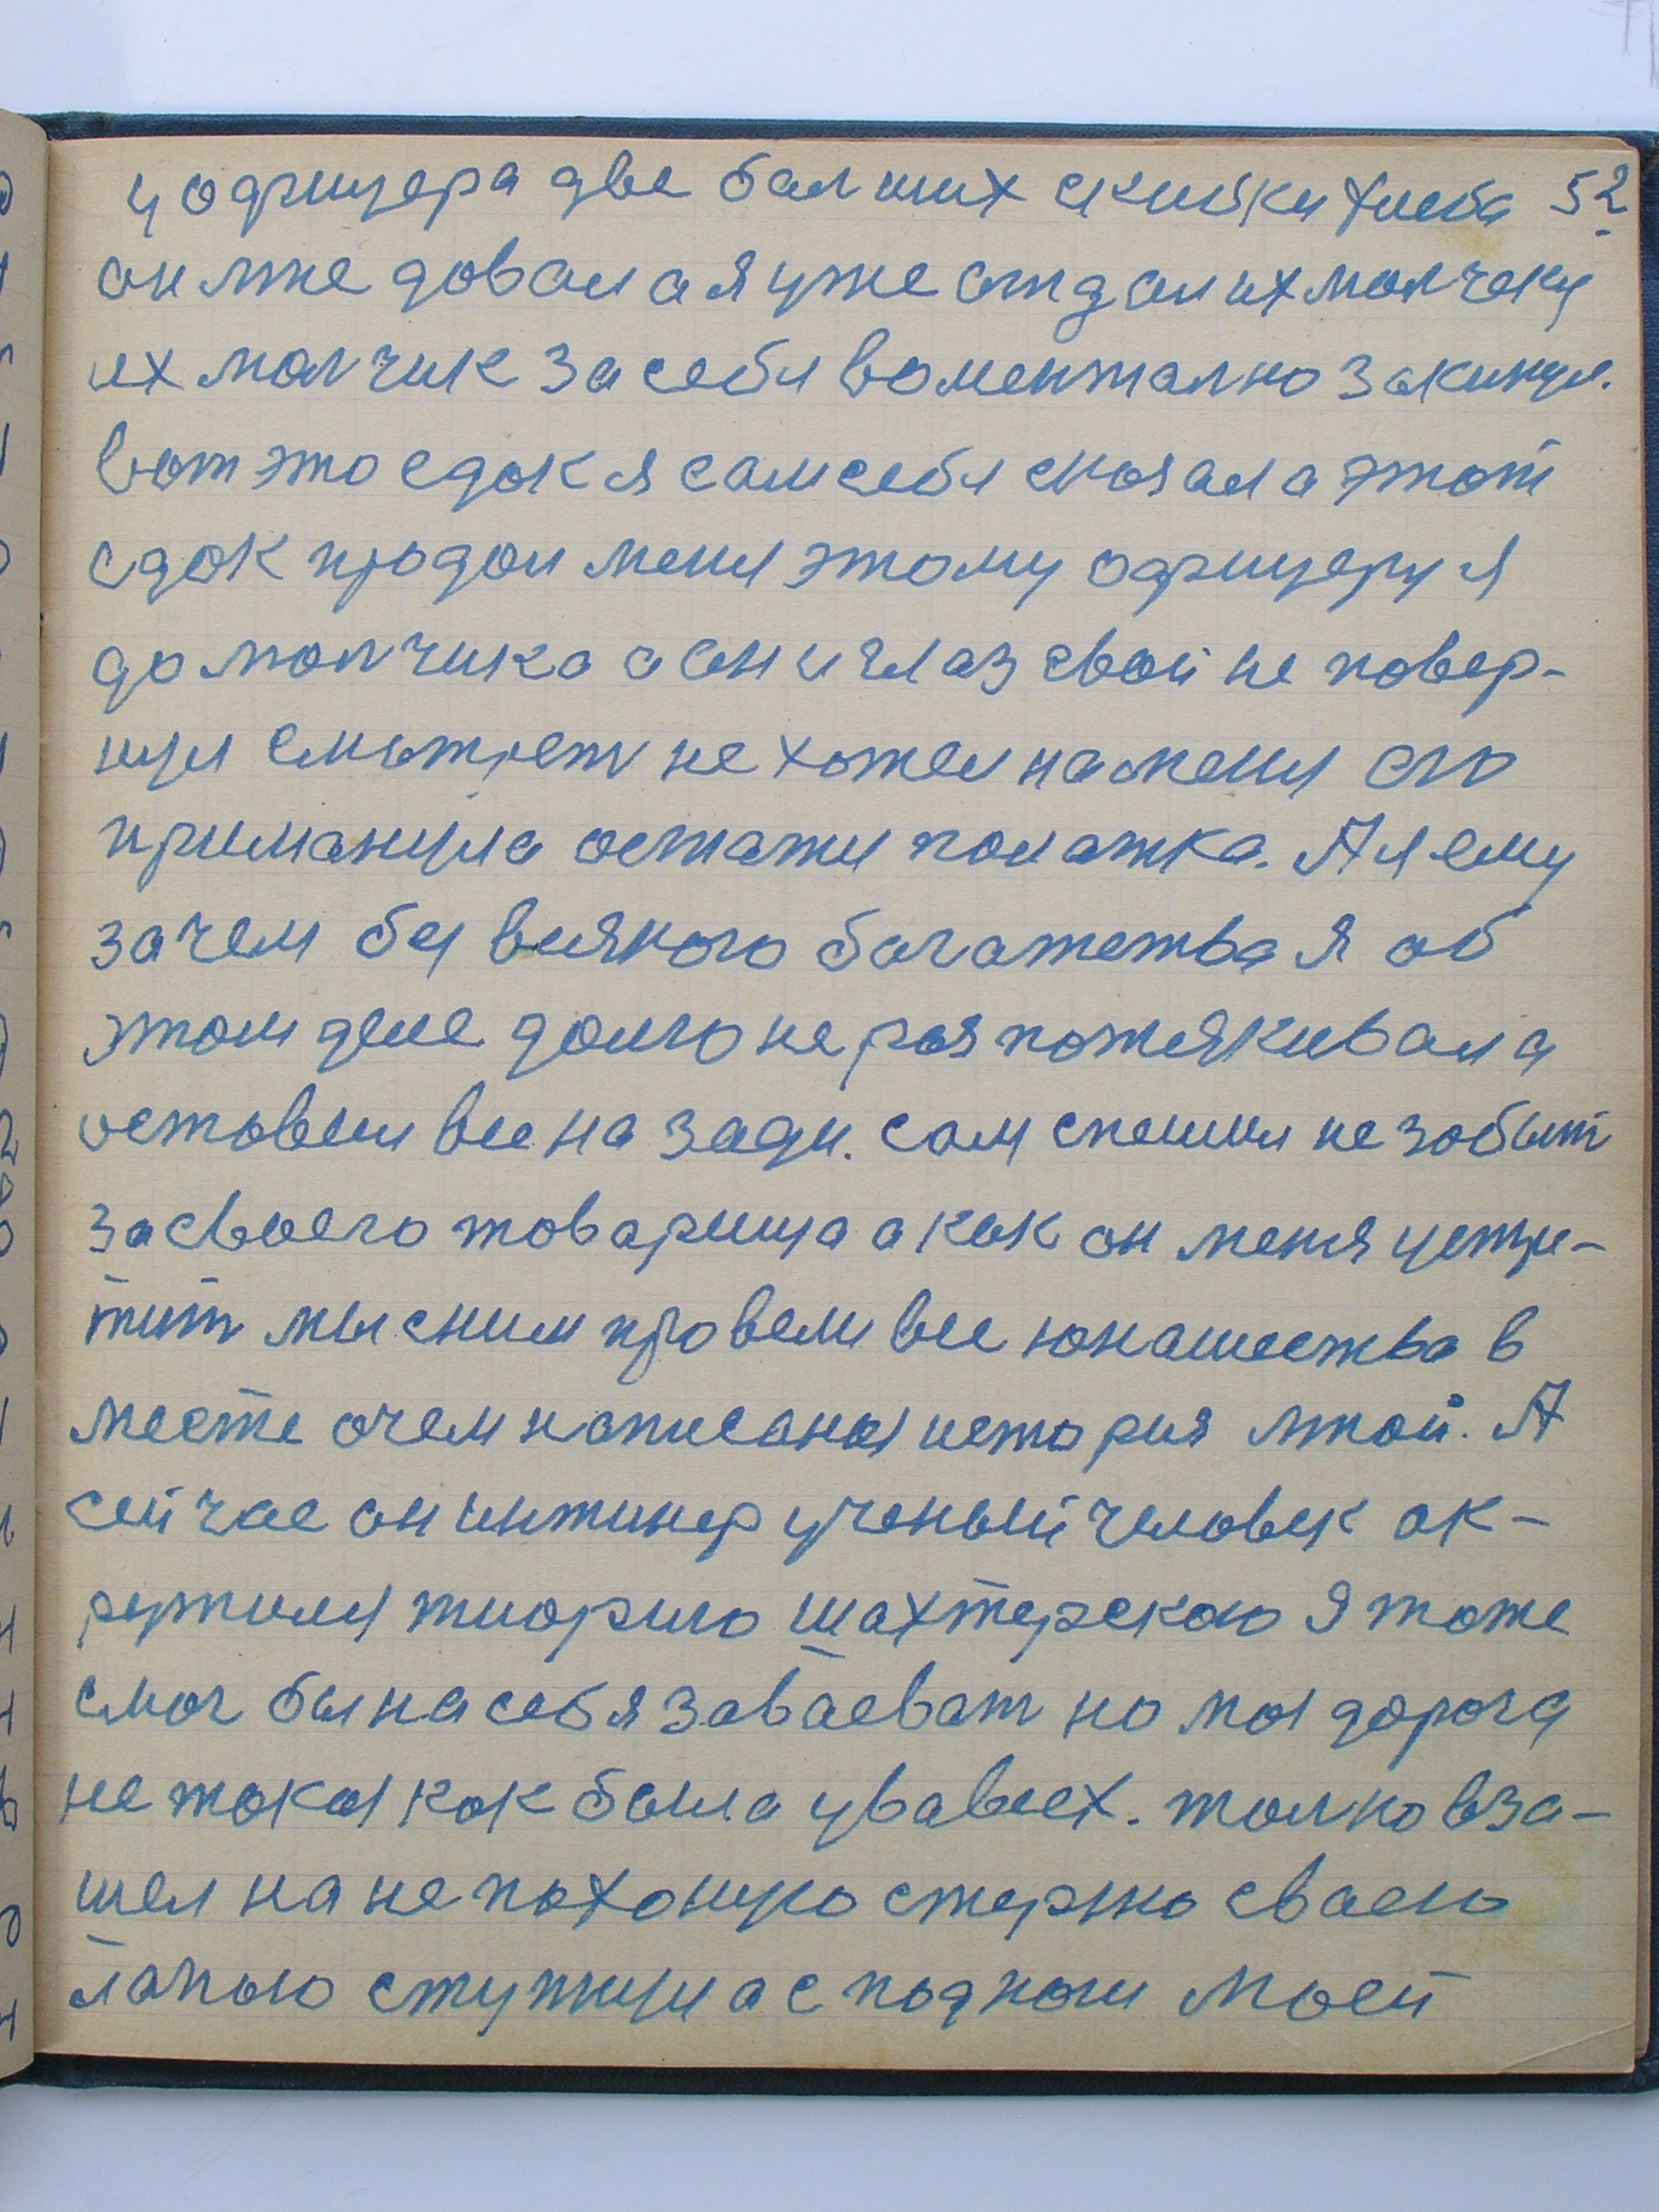 у офицера две балших скибки хлеба 52
он мне довал а я уже отдал их молчеку
их малчик за себя воментално закинул.
вот это едок я сам себя сказал а этот
едок продал меня этому офицеру я
до молчика а он и глаз свой не повер-
нул смотрет не хотел на меня его
приманула остатки полатка. А я ему
зачем бы всякого багатства я об
этом деле долго не розпотякивал а
оставил все на зади. сам спешил не зобыт
за своего товарища а как он меня устри-
тит мы сним провели все юнашества в
месте очем написаны история мной. А
сейчас он инжинер ученый человек ок-
ружился тиорию шахтерскою Я тоже
смог бы на себя заваеват но моя дорога
не токая как была у вавсех. толко вза-
шел на не похоную стерню сваею
лапою ступнул а с под ноги моей